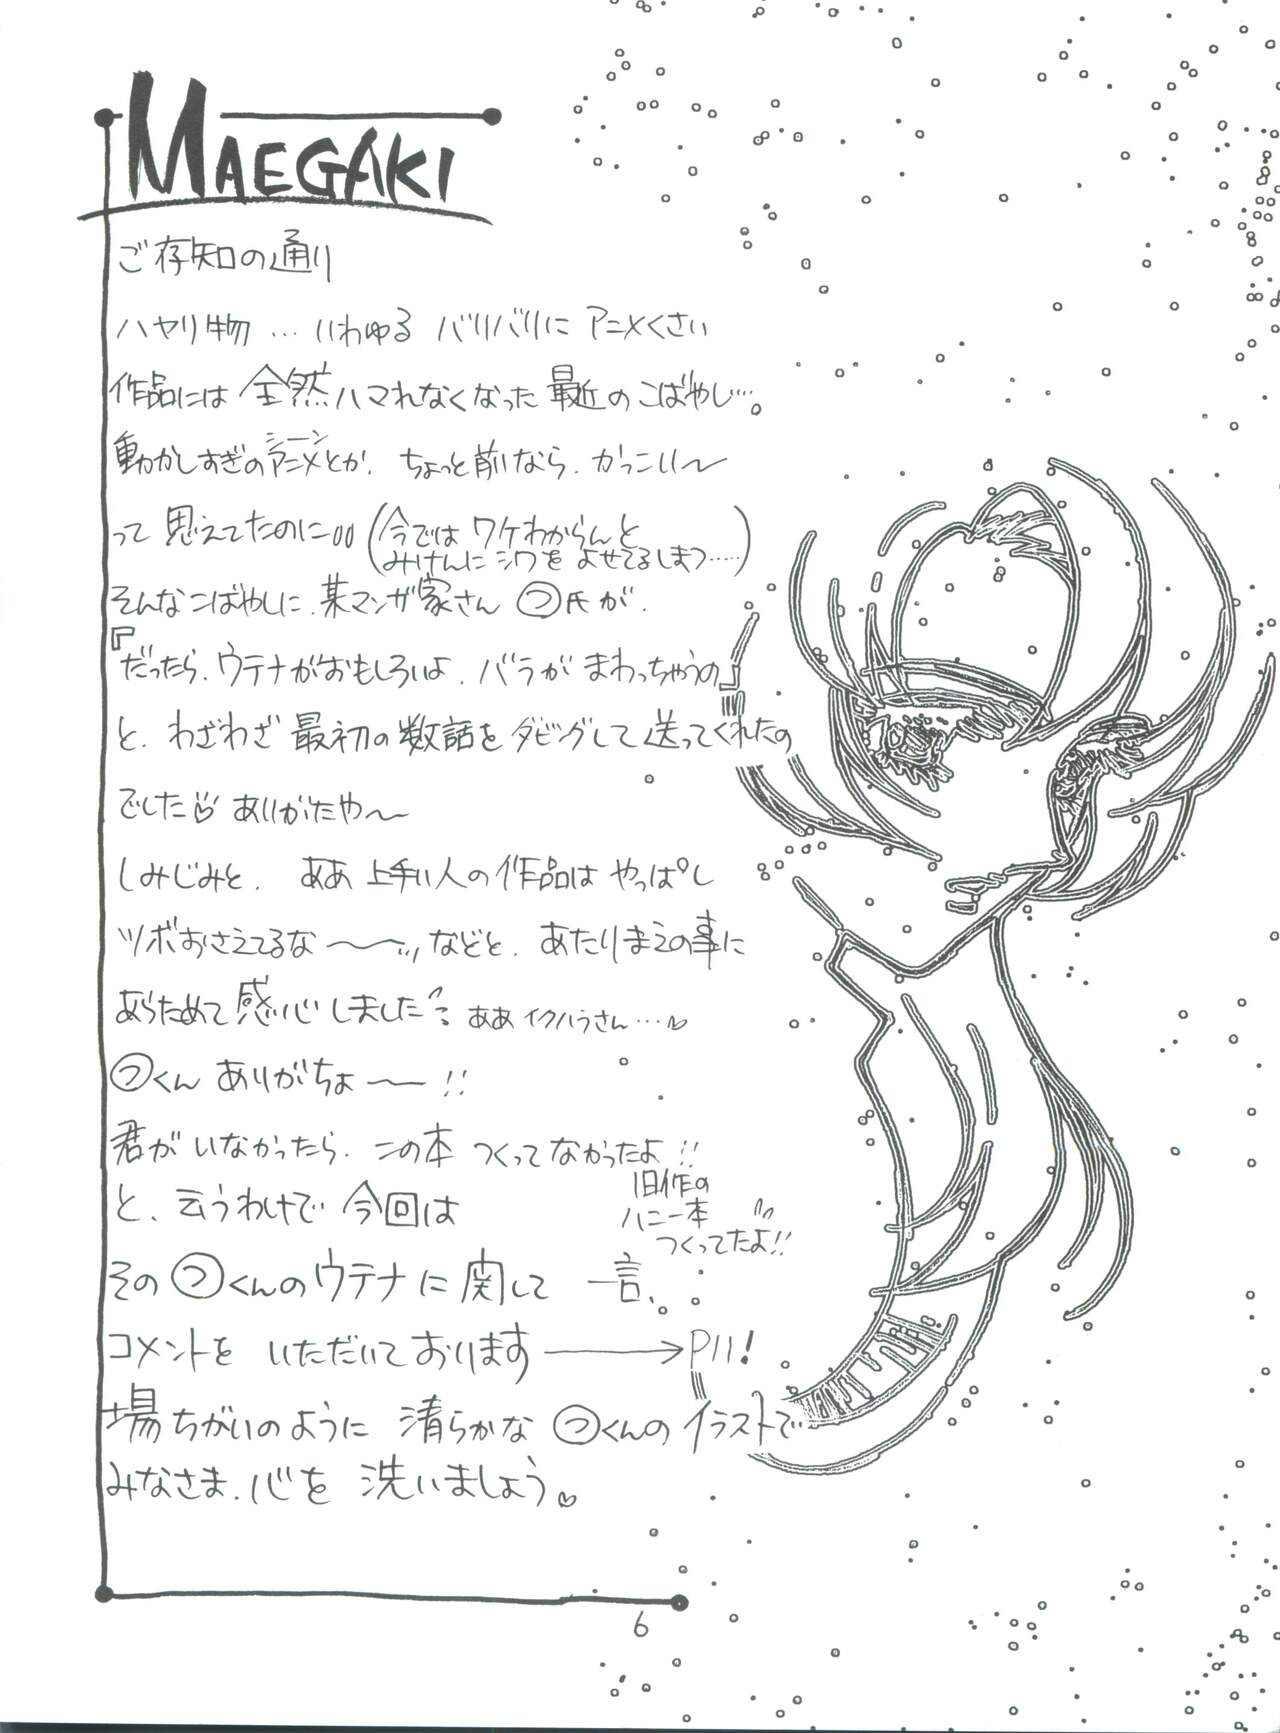 MAEGAKI
ご存知の通り
ハヤリ物…いわゆる バリバリに アニメくさい
作品には 全然ハマれなくなった 最近の こばやし…。
動かしすぎのアニメとか、ちょっと前なら、かっこいい〜
シーン
って 思えてたのに
(今では ワケわからんと
みけんに シワを よせてるしまつ……)
そんなこばやしに、某マンガ家さん ㋡氏が、
『だったら、ウテナがおもしろいよ、バラが まわっちゃうの』
と、わざわざ 最初の数話を ダビングして 送ってくれたの
でした♡ ありがたや〜
しみじみと、 ああ 上手い人の 作品は やっぱし
ツボおさえてるな〜〜〜ッ などと、あたりまえの事に
あらためて 感心しました ああ イクハラさん…♡
㋡くん ありがちょ〜〜!!
君が いなかったら、この本 つくってなかったよ!!
旧作の
ハニー本
つくってたよ!!
と、云うわけで 今回は
その ㋡くんのウテナに 関して 一言、
コメントを いただいております ―→P11!
場ちがいのように 清らかな ㋡くんの イラストで
みなさま、心を 洗いましょう♡
6